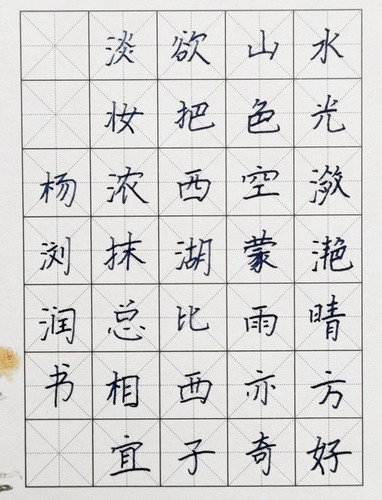 水光潋滟晴方好
山色空蒙雨亦奇
欲把西湖比西子
淡妆浓抹总相宜
杨浏润书